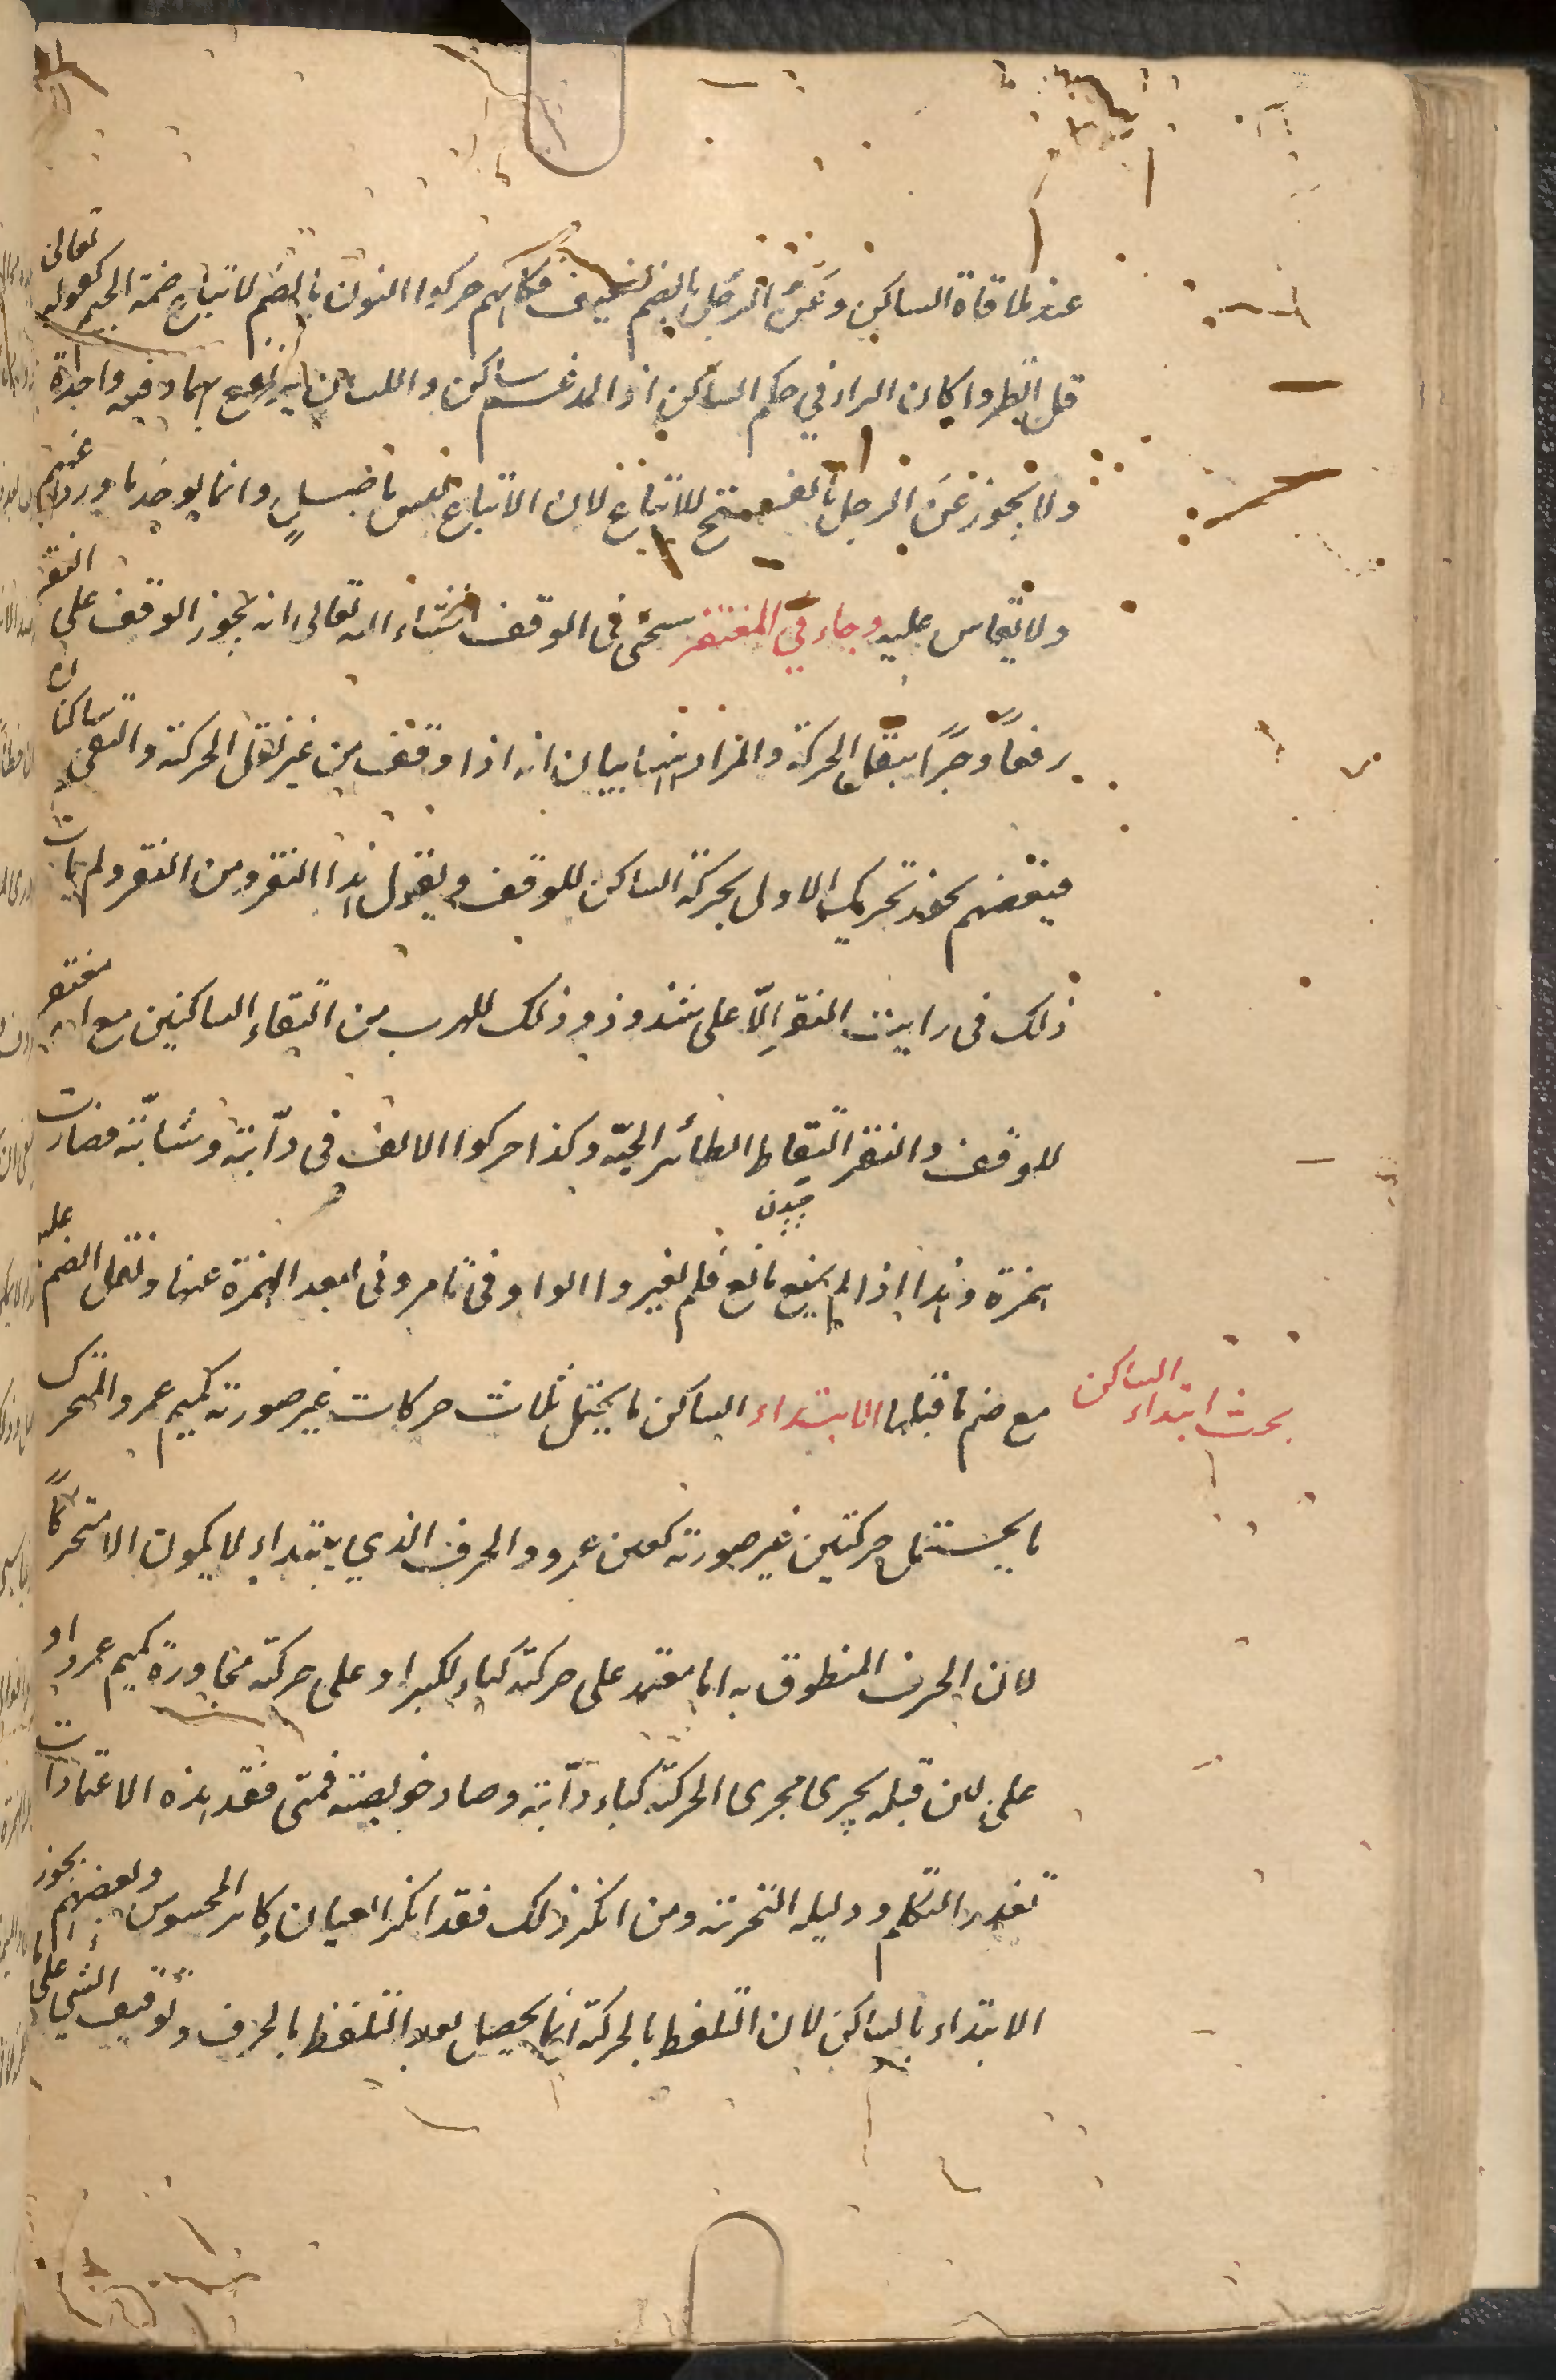 عند ملاقاة الساكن وعَنُ الرجل بالضم ضعيف فكانهم حركوا النون بالضم لاتباع ضمة الجيم كقوله تعالى
قل انظروا كان الراء في حكم الساكن اذ المدغم ساكن واللسان يرتفع بهما دفعة واحدة
ولا يجوز عَنَ الرجل بالفتح للاتباع لان الاتباع ليس باصلٍ وانما يوخذ ما ورد عنهم
ولا يقاس عليه وجاء في المغتفر سيجئ في الوقف انشاء الله تعالى انه يجوز الوقف على النقر
رفعاً وجرًا بنقل الحركة والمراد هنا بيان انه اذا وقف من غير نقل الحركة والتقى ساكنان
فبعضهم يجوز تحريك الاول بحركة الساكن للوقف ويقول هذا النقر ومن النقر ولم يات
ذلك في رايت النقر الّا على شذوذ وذلك للهرب من التقاء الساكنين مع انه مغتفر
للوقف والنقر التقاط الطائر الحبّة وكذا حركوا الالف في دآبّة وشآبّة فصارت
همزة وهذا اذا لم يمنع مانع فلم يغيروا الواو في تامروني لبعد الهمزة عنها وثقل الضم عليه
مع ضم ما قبلها الابتداء الساكن ما يحتمل ثلاث حركات غير صورته كميم عمرو المتحرك
بحث ابتداء الساكن
ما يحتمل حركتين غير صورته كعين عمرو والحرف الذي يبتداء لا يكون الا متحركاً
لان الحرف المنطوق به اما معتمد على حركته كباء بكر او على حركة مجاورة كميم عمرو او
على لين قبله يجرى مجرى الحركة كباء دآبّة وصاد خويصة فمتى فقد هذه الاعتمادات
تعذر التكلم ودليله التجربة ومن انكر ذلك فقد انكر العيان وكابر المحسوس وبعضهم يجوز
الابتداء بالساكن لان التلفظ بالحركة انما يحصل بعد التلفظ بالحرف وتوقيف الشئ على